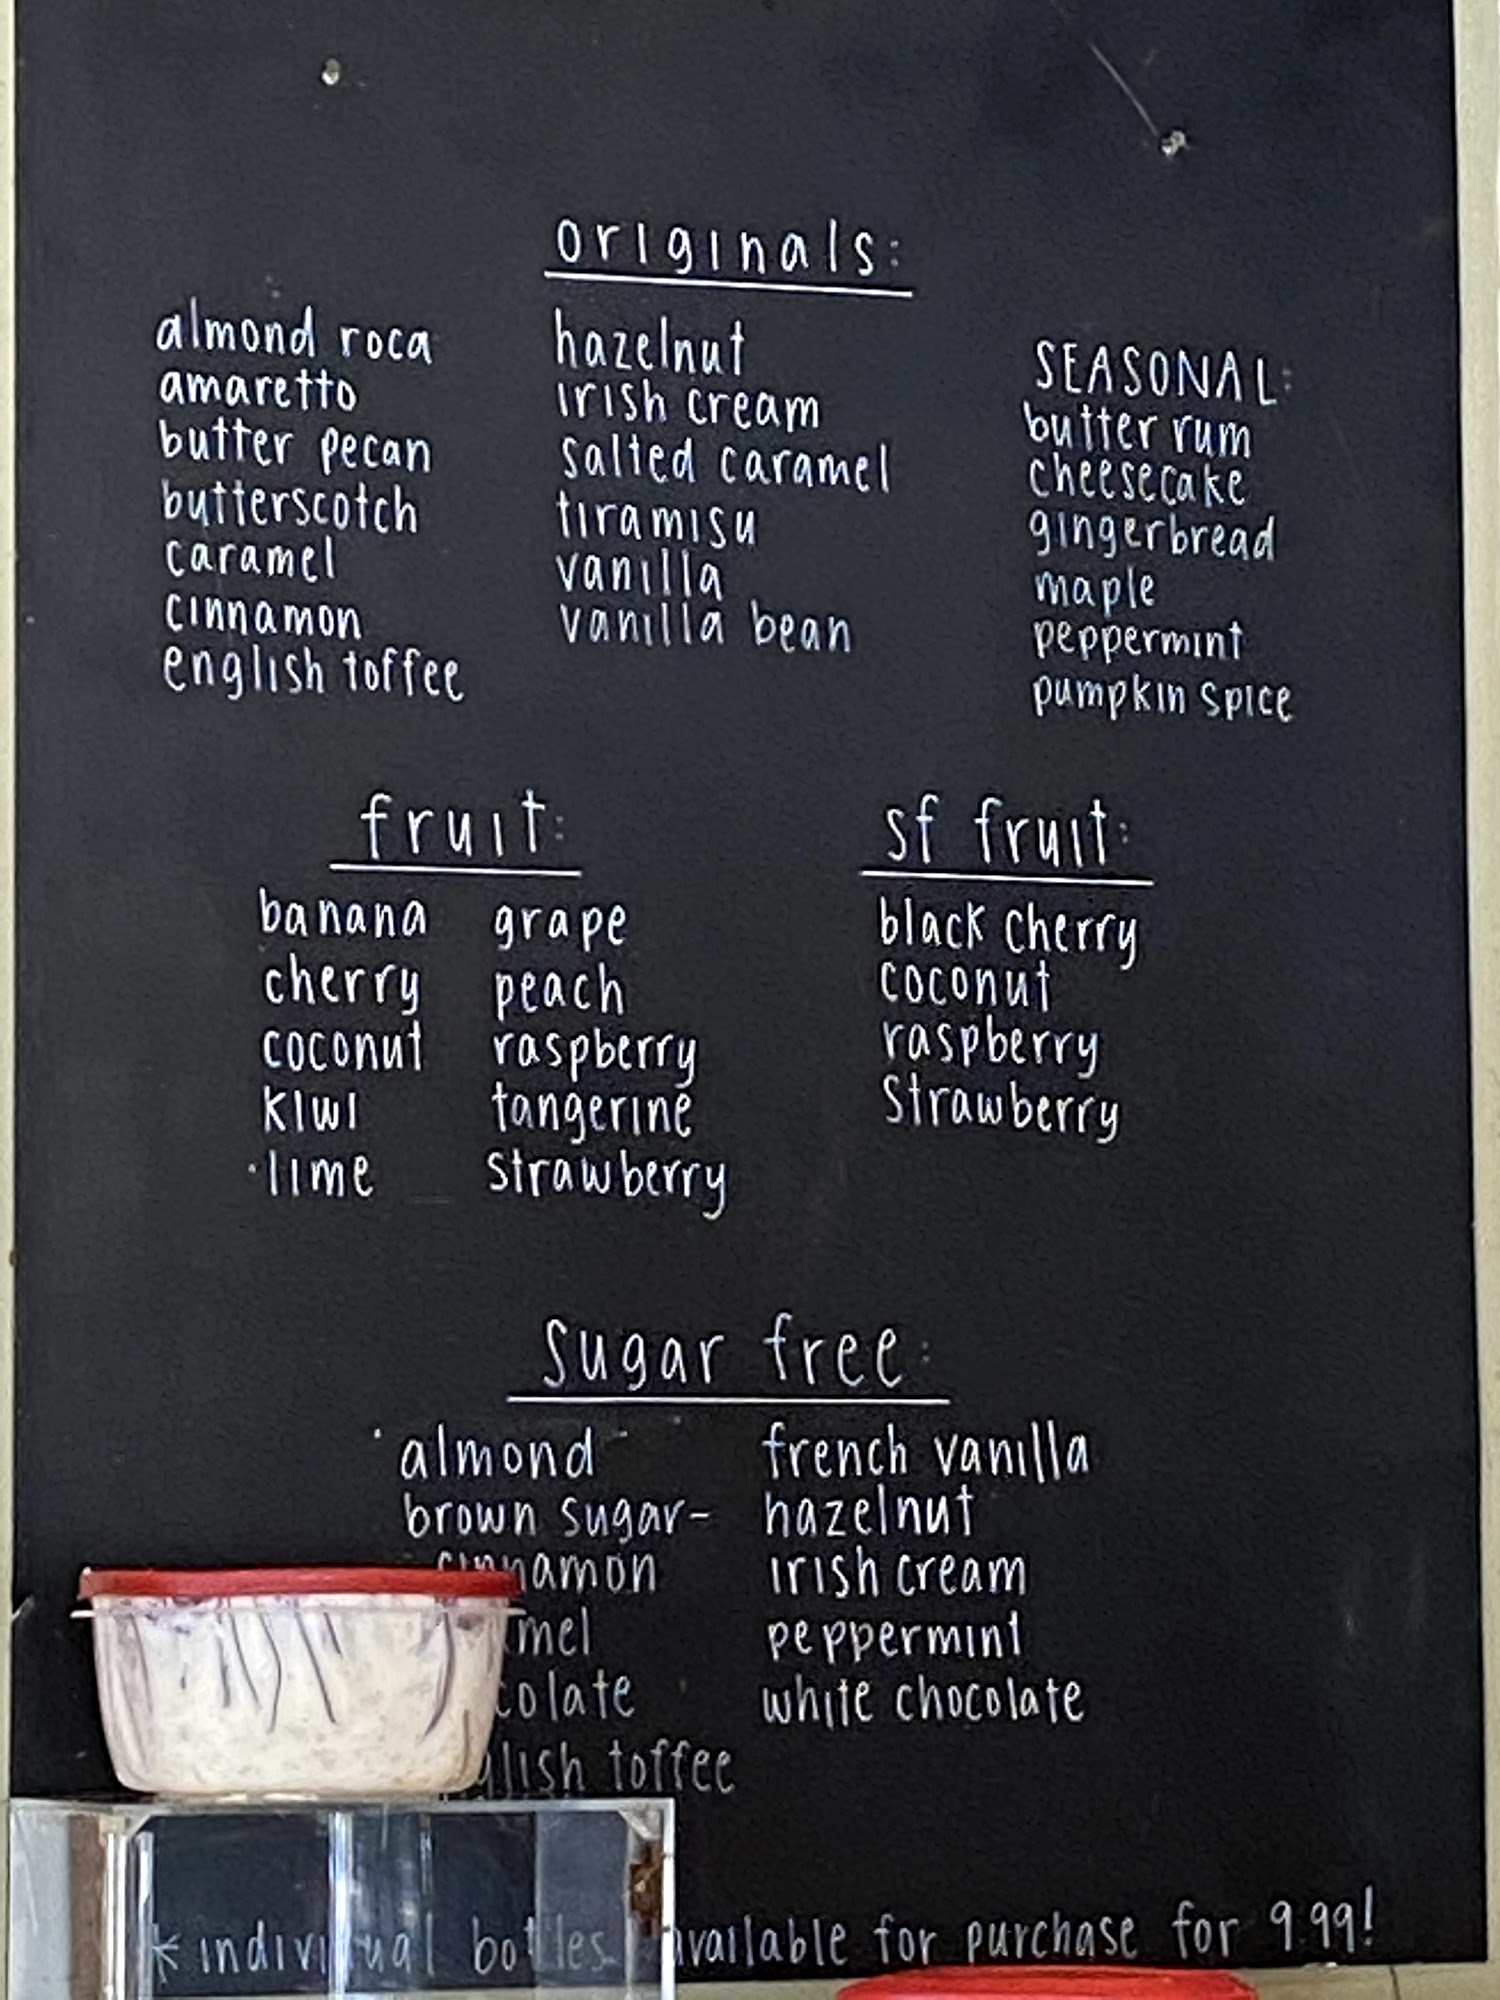 originals:
almond roca
amaretto
butter pecan
butterscotch
caramel
cinnamon
english toffee
hazelnut
irish cream
salted caramel
tiramisu
vanilla
vanilla bean
SEASONAL:
butter rum
cheesecake
gingerbread
maple
peppermint
pumpkin spice
fruit:
banana
cherry
coconut
kiwi
lime
grape
peach
raspberry
tangerine
strawberry
sf fruit:
black cherry
coconut
raspberry
strawberry
sugar free:
almond
brown sugar-
cinnamon
mel
colate
glish toffee
french vanilla
hazelnut
irish cream
peppermint
white chocolate
* individual bottles available for purchase for 9.99!